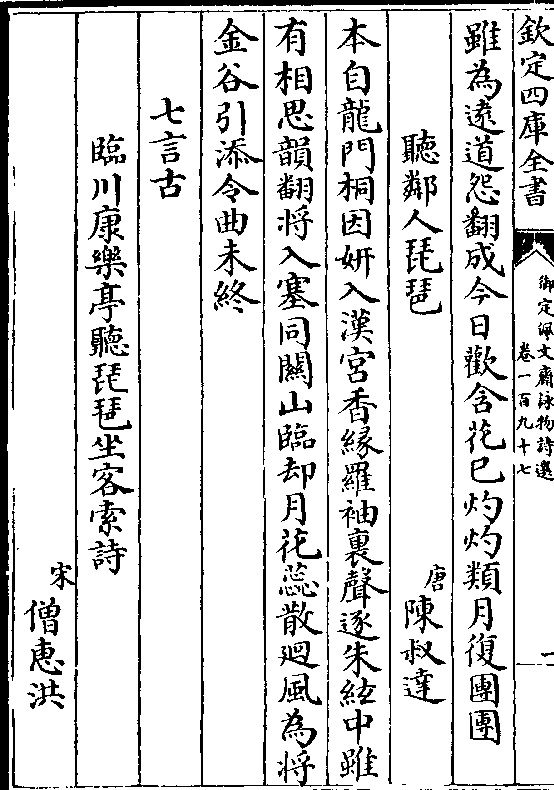 欽定四庫全書
御定佩文齋詠物詩選
卷一百九十七
一
雖為遠道怨翻成今日歡含花已灼灼類月復團團
聽鄰人琵琶
唐
陳叔達
本自龍門桐因妍入漢宮香縁羅袖裏聲逐朱絃中雖
有相思韻翻將入塞同關山臨却月花蕊散廻風為將
金谷引添令曲未終
七言古
臨川康樂亭聽琵琶坐客索詩
宋
僧惠洪